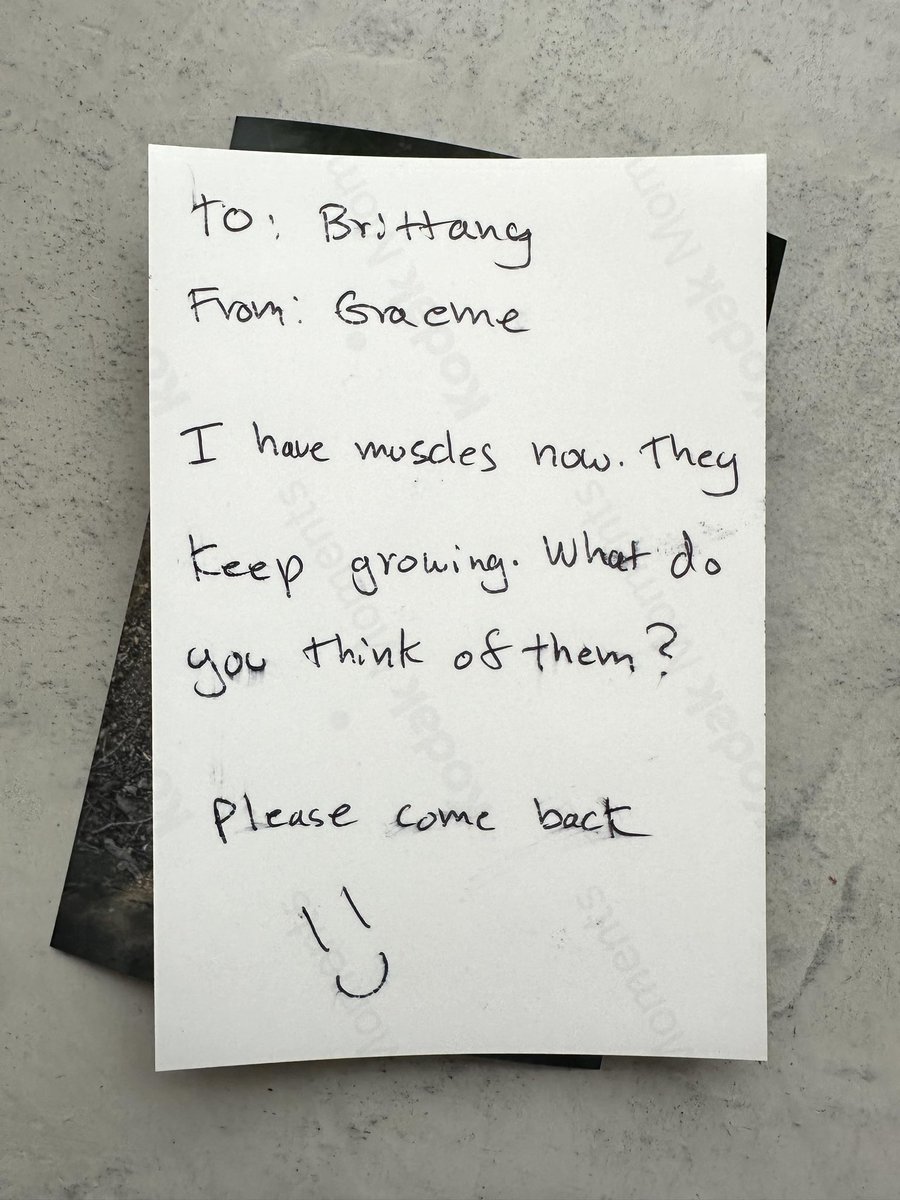 To: Brittany
From: Graeme
I have muscles now. They
keep growing. What do
you think of them?
please come back
Kodak Moments
Kodak Moments
Kodak Moments
Kodak Moments